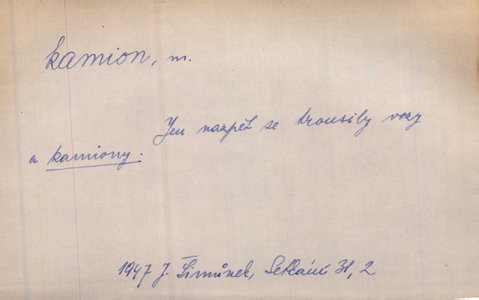 kamion, m.
Jen nazpět se trousily vozy
a kamiony.
1947 J. Šimůnek, Setkání 31, 2